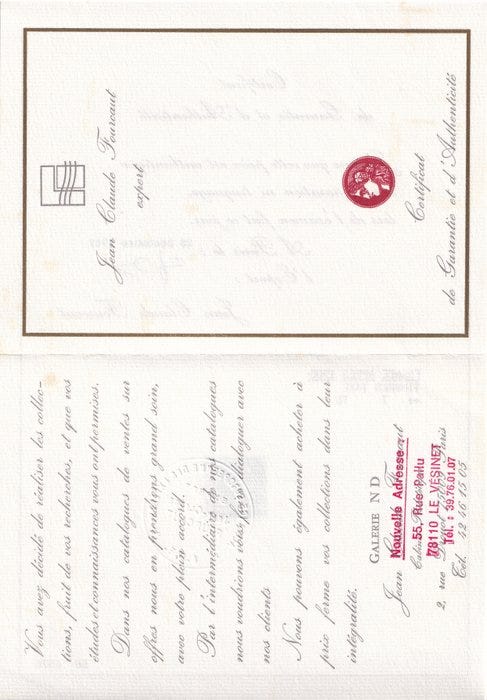 Jean Claude Fourcaut
expert
Certificat
de Garantie et d'Authenticité
Vous avez décidé de réaliser les collec-
tions, fruit de vos recherches, et que vos
études et connaissances vous ont permises.
Dans nos catalogues de ventes sur
offres nous en prendrons grand soin,
avec votre plein accord.
Par l'intermédiaire de nos catalogues
nous voudrions vous faire dialoguer avec
nos clients
Nous pouvons également acheter à
prix ferme vos collections dans leur
intégralité.
GALERIE N D
Jean
2, rue
Tél. 42 46 15 65
Nouvelle Adresse :
55, Rue Pallu
78110 LE VÉSINET
Tél. : 39.76.01.07